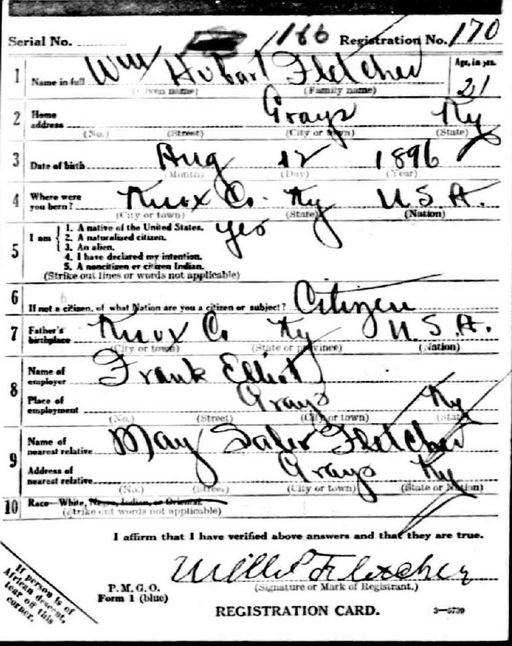 Serial No. 186 Registration No. 170
1 Name in full Wm Hubart Fletcher Age, in yrs. 21
(Given name) (Family name)
2 Home address Grays Ky
(No.) (Street) (City or town) (State)
3 Date of birth Aug 12 1896
(Month) (Day) (Year)
4 Where were you born? Knox Co. Ky U.S.A.
(City or town) (State) (Nation)
5 I am
1. A native of the United States. yes
2. A naturalized citizen.
3. An alien.
4. I have declared my intention.
5. A noncitizen or citizen Indian.
(Strike out lines or words not applicable)
6 If not a citizen, of what Nation are you a citizen or subject? Citizen
7 Father's birthplace Knox Co Ky U.S.A.
(City or town) (State or province) (Nation)
8 Name of employer Frank Elliott
Place of employment Grays Ky
(No.) (Street) (City or town) (State)
9 Name of nearest relative May Fletcher
Address of nearest relative Grays Ky
(No.) (Street) (City or town) (State or Nation)
10 Race—White, Negro, Indian, or Oriental
(Strike out words not applicable)
I affirm that I have verified above answers and that they are true.
Willie Fletcher
(Signature or Mark of Registrant.)
P. M. G. O.
Form 1 (blue)
REGISTRATION CARD. 3—6739
If person is of
African descent,
tear off this
corner.